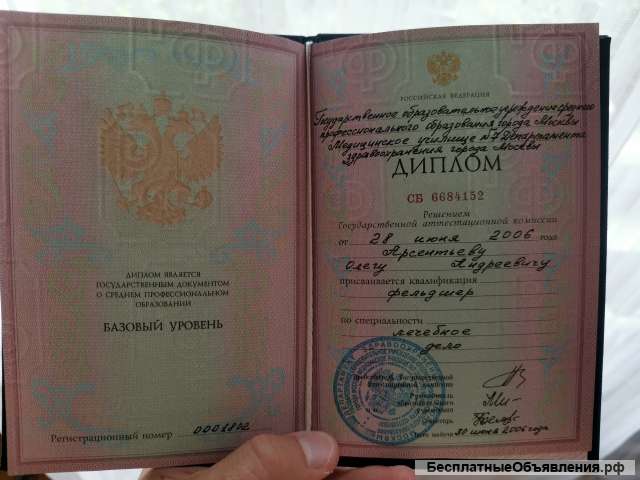 ДИПЛОМ ЯВЛЯЕТСЯ
ГОСУДАРСТВЕННЫМ ДОКУМЕНТОМ
О СРЕДНЕМ ПРОФЕССИОНАЛЬНОМ
ОБРАЗОВАНИИ
БАЗОВЫЙ УРОВЕНЬ
Регистрационный номер 0001802
РОССИЙСКАЯ ФЕДЕРАЦИЯ
Государственное образовательное учреждение среднего
профессионального образования города Москвы
Медицинское училище №7 Департамента
здравоохранения города Москвы
ДИПЛОМ
СБ 6684152
Решением
Государственной аттестационной комиссии
от 28 июня 2006 года
Арсентьеву
Олегу Андреевичу
присваивается квалификация
фельдшер
по специальности
лечебное
дело
Председатель Государственной
аттестационной комиссии
Руководитель
образовательного
учреждения
Секретарь
Дата выдачи 30 июня 2006 года
БесплатныеОбъявления.рф